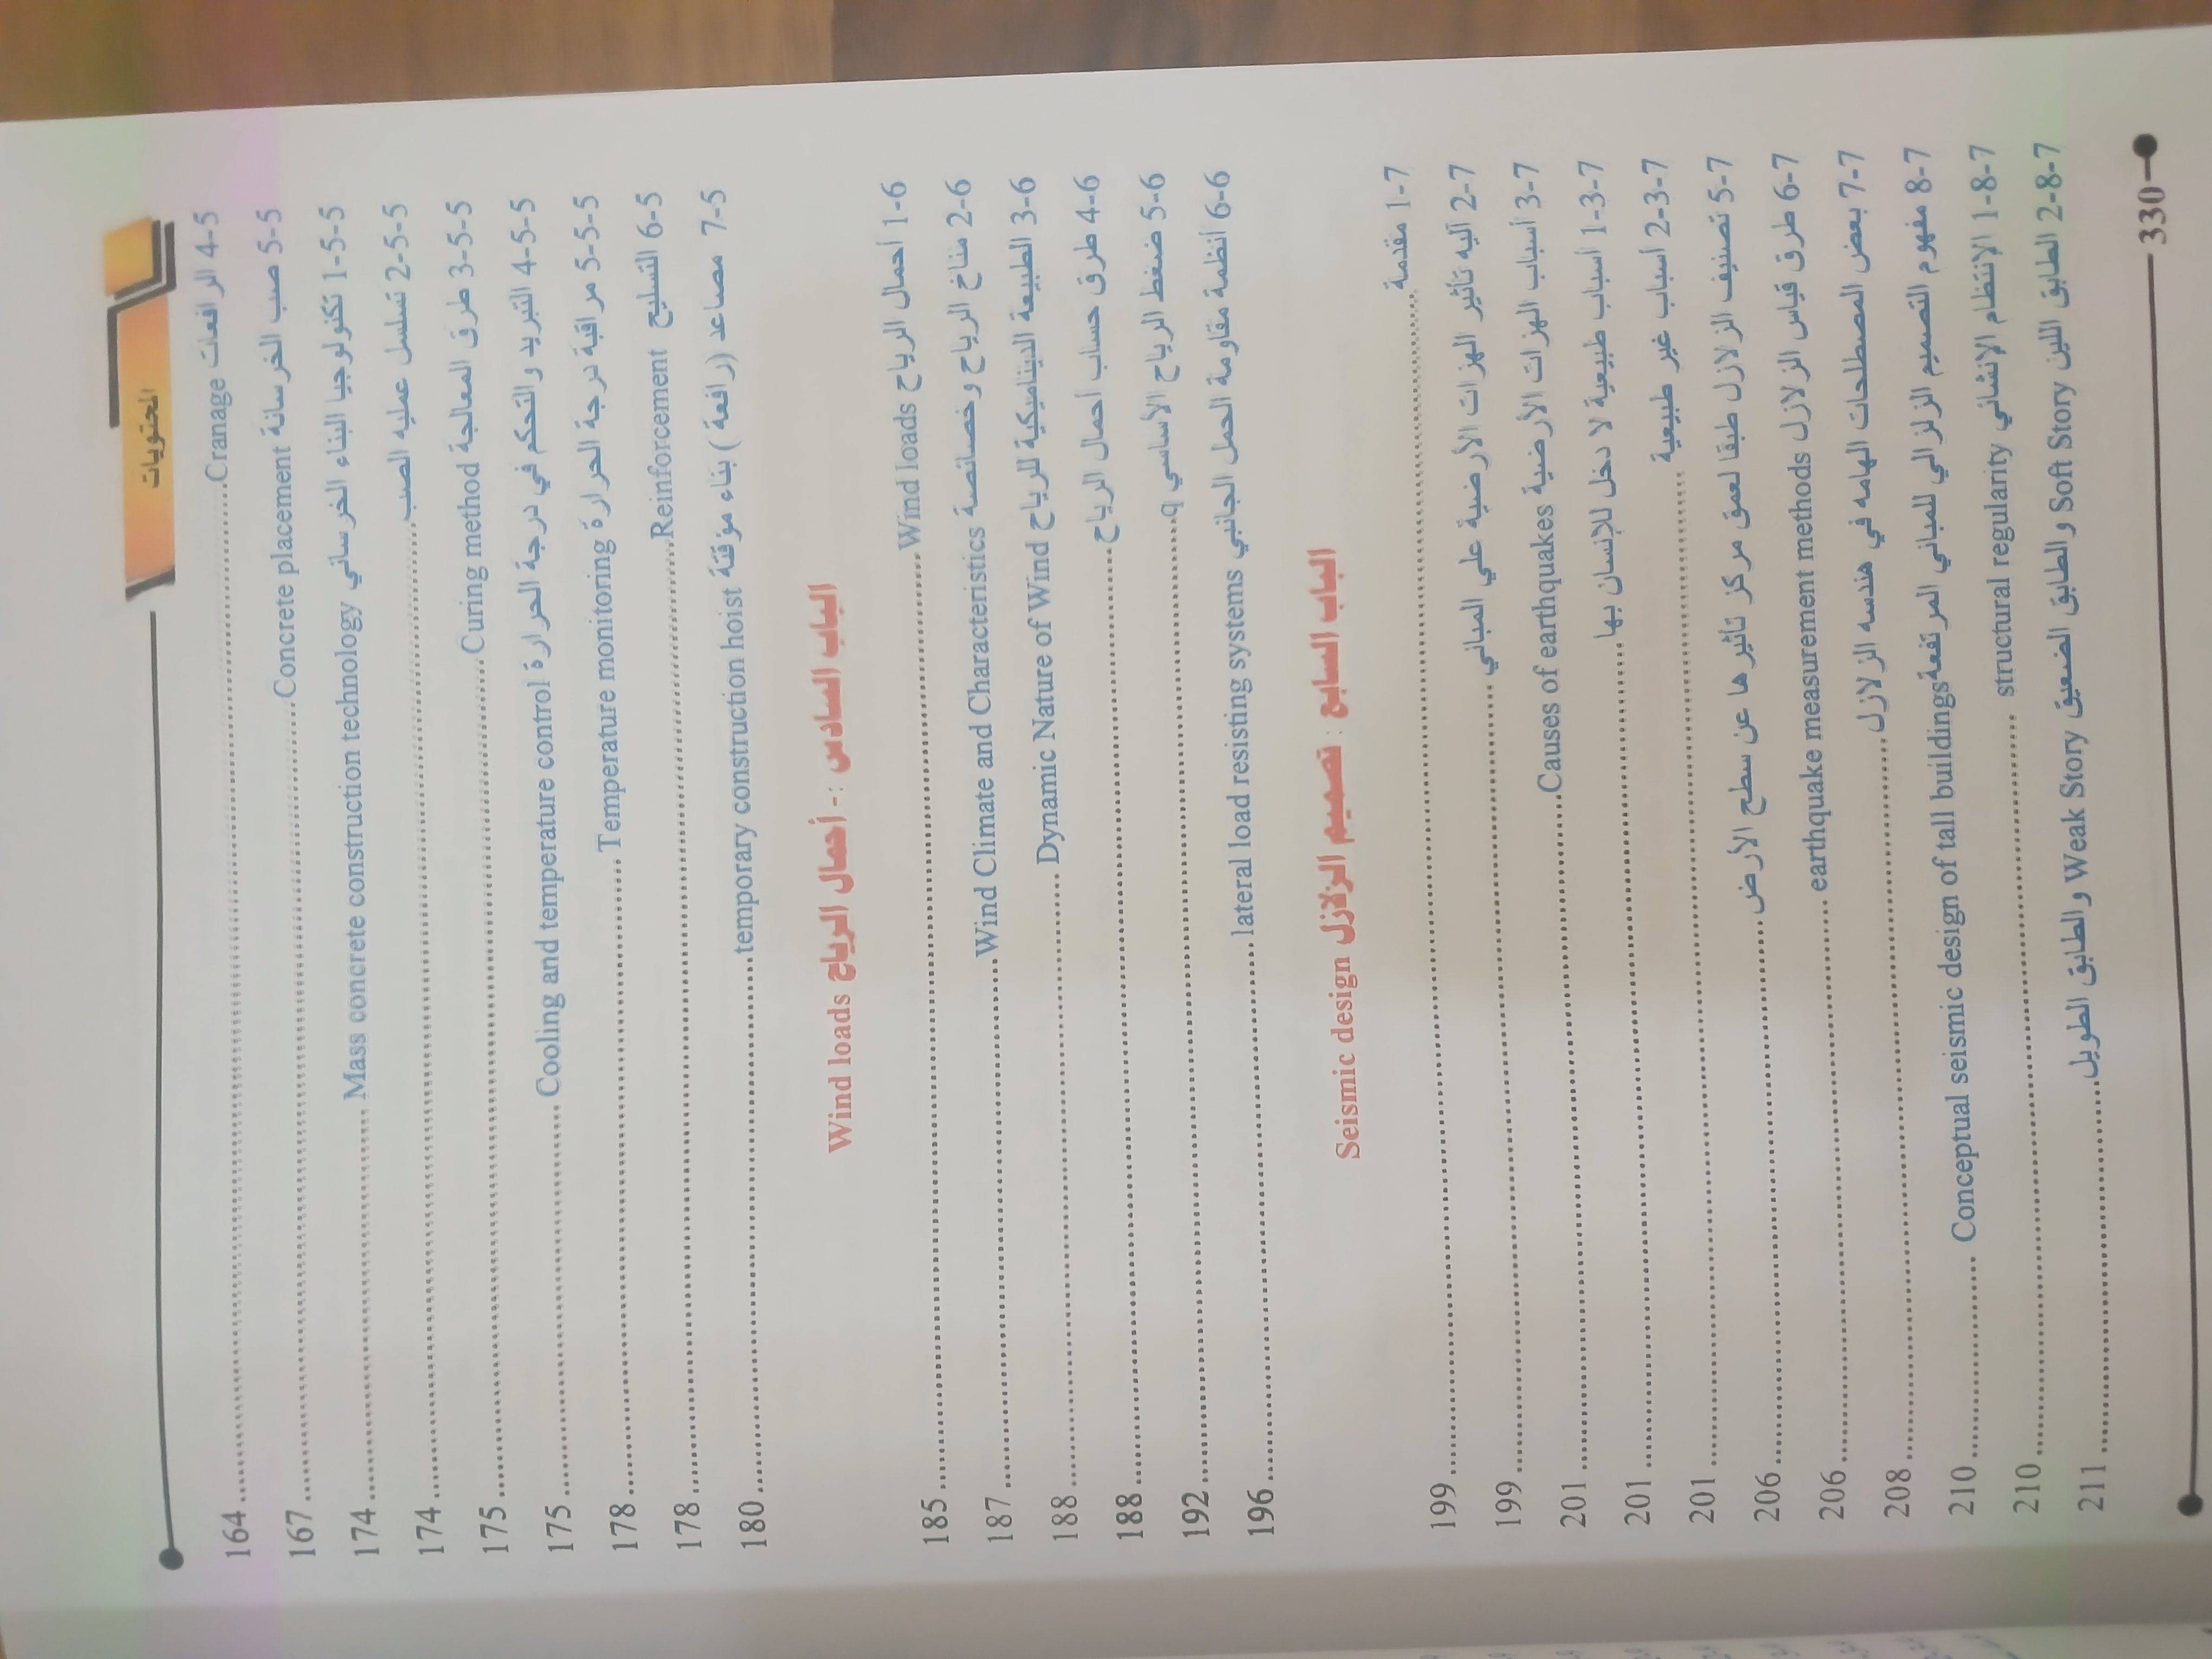 المحتويات
4-5 الرافعات Cranage 164
5-5 صب الخرسانة Concrete placement 167
1-5-5 تكنولوجيا البناء الخرساني Mass concrete construction technology 174
2-5-5 تسلسل عمليه الصب 174
3-5-5 طرق المعالجة Curing method 175
4-5-5 التبريد والتحكم في درجة الحرارة Cooling and temperature control 175
5-5-5 مراقبة درجة الحرارة Temperature monitoring 178
6-5 التسليح Reinforcement 178
7-5 مصاعد (رافعة) بناء مؤقتة temporary construction hoist 180
الباب السادس :- أحمال الرياح Wind loads
1-6 أحمال الرياح Wind loads 185
2-6 مناخ الرياح وخصائصة Wind Climate and Characteristics 187
3-6 الطبيعة الديناميكية للرياح Dynamic Nature of Wind 188
4-6 طرق حساب أحمال الرياح 188
5-6 ضغط الرياح الأساسي q 192
6-6 أنظمة مقاومة الحمل الجانبي lateral load resisting systems 196
الباب السابع : تصميم الزلازل Seismic design
1-7 مقدمة 199
2-7 آليه تأثير الهزات الأرضية علي المباني 199
3-7 أسباب الهزات الأرضية Causes of earthquakes 201
1-3-7 أسباب طبيعية لا دخل للإنسان بها 201
2-3-7 أسباب غير طبيعية 201
5-7 تصنيف الزلازل طبقا لعمق مركز تأثيرها عن سطح الأرض 206
6-7 طرق قياس الزلازل earthquake measurement methods 206
7-7 بعض المصطلحات الهامه في هندسه الزلازل 208
8-7 مفهوم التصميم الزلزالي للمباني المرتفعة Conceptual seismic design of tall buildings 210
1-8-7 الإنتظام الانشائي structural regularity 210
2-8-7 الطابق اللين Soft Story والطابق الضعيف Weak Story والطابق الطويل 211
330